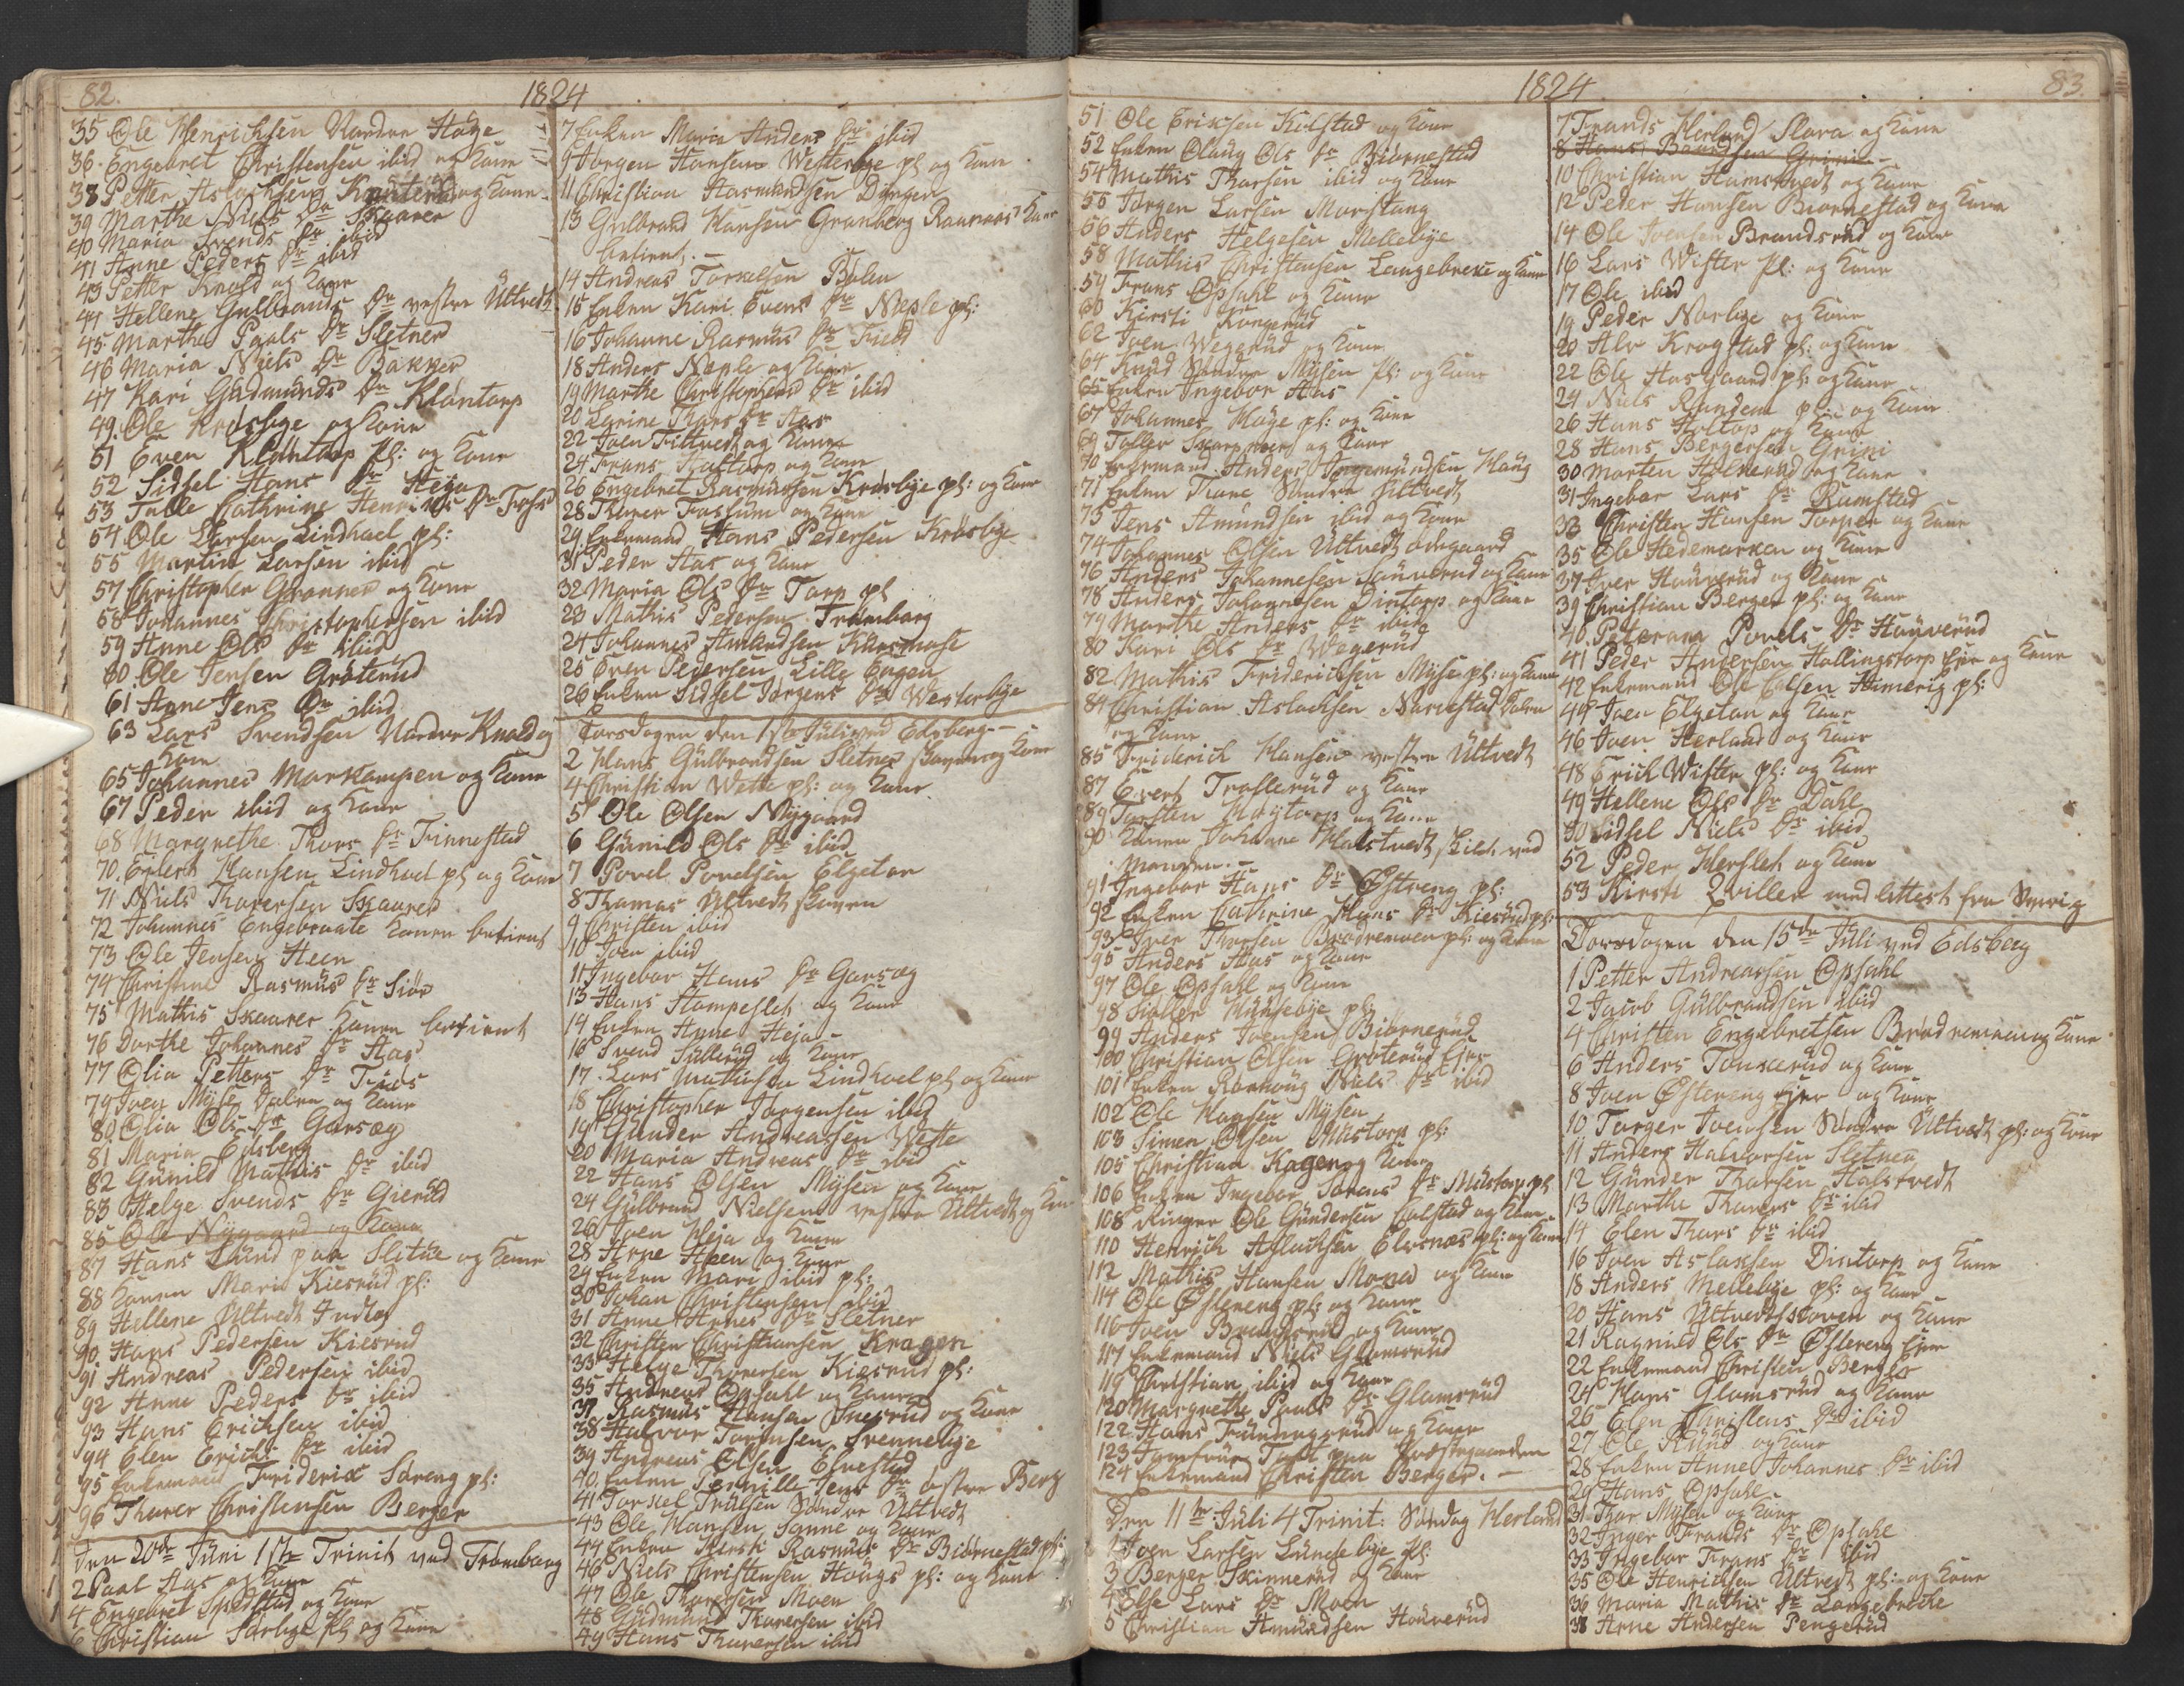 82.
1824
35 Ole Henrichsen Nordre Høye
36 Engebret Christensen ibid og Kone
38 Petter Aslachsen og Kone
39 Marthe Niels Dr Skaarer
40 Maria Svends Dr ibid
41 Anne Peders Dr ibid
43 Petter Knold og Kone
44 Hellene Gulbrands Dr vestre Ultvedt
45 Marthe Paals Dr Sletner
46 Maria Niels Dr Bakker
47 Kari Gudmunds Dr Kløntorp
49. Ole Krosbye og Kone
51 Even Kløntorp Pl: og Kone
52 Sidsel Hans Dr Heja
53 Cathrine Dr
54 Ole Larsen Lindhoel pl:
55 Martin Larsen ibid
57 Christopher Grønnes og Kone
58 Johannes Christophersen ibid
59 Anne Ols Dr ibid
60 Ole Jensen Grøterud
61 Anne Jens Dr ibid
63 Lars Svendsen Nordre Knold og
Kone
65 Johannes Morkampen og Kone
67 Peder ibid og Kone
68 Margrethe Thors Dr Finnestad
70. Erlert Hansen Lindhoel pl og Kone
71 Niels Thoresen Skaarer
72 Johannes Engebraate Konen betient
73 Ole Jensen Heen
74 Christine Rasmus Dr Siør
75 Mathis Skaarer Konen betient
76 Dorthe Johannes Dr Aas
77 Olia Petters Dr
79 Joen Myse og Kone
80 Olia Ols Dr Garsæg
81 Maria Edsberg
82 Gunild Mathis Dr ibid
83 Helge Svends Dr Gierud
85 Ole Nygaard og Kone
87 Hans Lund paa Slitue og Kone
88 Konen Mari Kiesrud pl:
89 Hellene Ultvedt Indlæg
90 Hans Pedersen Kiesrud
91 Andreas Pedersen ibid
92 Anne Peders Dr ibid
93 Hans Erichsen ibid
94 Elen Erichs Dr ibid
95 Enkemand Friderix Søreng pl:
96 Thorer Christensen Berger
Den 20de Juni 1ste Trinit ved Trømborg
2 Paal Aas og Kone
4 Engebret og Kone
6 Christian Sørbye Pl og Kone
7 Enken Maria Anders Dr ibid
9 Jørgen Hansen Westerbye pl og Kone
11 Christian Dingen
13 Gulbrand Hansen Granberg Kone
betient. -
14 Andreas Torkelsen Bølen
15 Enken Kari Evens Dr Næple pl:
16 Johanne Rasmus Dr
18 Anders Næple og Kone
19 Marthe Christophers Dr ibid
20 Larine Thors Dr Aas
22 Joen Filtvedt og Kone
24 Frans og Kone
26 Engebret Rasmussen Krosbye pl: og Kone
28 Thorer Fossum og Kone
29 Enkemand Hans Pedersen Krosbye
31 Peder Aas og Kone
32 Maria Ols Dr Torp pl
23 Mathis Pedersen Trømborg
24 Johannes Amundsen
25 Even Pedersen Lille Engen
26 Enken Sidsel Jørgens Dr Westerbye
Torsdagen den 1ste Juli ved Edsberg -
2 Hans Gulbrandsen Sletner og Kone
4 Christian Wette pl: og Kone
5 Ole Olsen Nygaard
6 Gunild Ols Dr ibid
7 Povel Povelsen Elgetøn
8 Thomas Ultvedt Skoven
9 Christen ibid
10 Joen ibid
11 Ingebor Hans Dr Garsæg
13 Hans Stompeslet og Kone
14 Enken Anne Heja -
16 Svend Sulleriud og Kone
17 Lars Mathisen Lindhoel pl og Kone
18 Christopher Jørgensen ibid
19 Gunder Andreassen Wette
20 Maria Andreas Dr ibid
22 Hans Olsen Mysen og Kone
24 Gulbrand Nielsen vestre Ultvedt og Kone
26 Joen Heja og Kone
28 Arne Heen og Kone
29 Enken Mari ibid pl:
30 Johan Christensen ibid
31 Anne Arnes Dr Sletner
32 Christen Christiansen Kragen
33 Helge Thoresen Kiesrud pl:
35 Andreas Opsahl og Kone
37 Rasmus Hansen og Kone
38 Halvor Svennebye
39 Andreas Olsen Elvestad
40. Enken Pernille Jens Dr østre Berg
41 Torkel Truelsen Søndre Ultvedt
43 Ole Hansen Sanne og Kone
44 Enken Kersti Rasmus Dr Biørnestad pl:
46 Niels Christensen Hougs pl: og Kone
47 Ole Thoresen Moen
48 Gudmund Thoresen ibid
49 Hans Thoresen ibid
1824
83.
51 Ole Erixsen Kolstad og Kone
52 Enken Olaug Ols Dr Biørnestad
54 Mathis Thorsen ibid og Kone
55 Jørgen Larsen Morstang
56 Anders Helgesen Mellebye
58 Mathis Christensen Langebrecke og Kone
59 Frans Opsahl og Kone
60 Kirsti Kongerud
62 Joen Wegerud og Kone
64 Knud Søndre Mysen Pl: og Kone
65 Enken Ingebor Aas
67 Johannes Høye pl: og Kone
69 Toller og Kone
70 Enkemand Anders Ingemundsen Haug
71 Enken Søndre Ultvedt
73 Jens Amundsen ibid og Kone
74 Johannes Olsen Ultvedt ødegaard
76 Anders Johannesen og Kone
78 Anders Johannesen Dintorp og Kone
79 Marthe Anders Dr ibid
80 Kari Ols Dr Wegerud
82 Mathis Friderichsen Myse pl: og Kone
84 Christian Aslachsen Narvestad
og Kone
85 Friderich Hansen vestre Ultvedt
87 Evert Troslerud og Kone
89 Torsten Høytorp og Kone
90 Konen Johanne Halstvedt skilt ved
Manden. -
91 Ingebor Hans Dr Østreng pl:
92 Enken Cathrine Hans Dr Kiesrud pl:
93 Iver Thorsen Brødremoen pl: og Kone
95 Anders Aas og Kone
97 Ole Opsahl og Kone
98 pl:
99 Anders Joensen Biørnerud
100 Christian Olsen Grøterud Eier
101 Enken Ranhoug Niels Dr ibid
102 Ole Hansen Mysen
103 Simen Olsen Mustorp pl:
105 Christian Kragen og Kone
106 Enken Ingebor Sørens Dr Mustorp pl
108 Ringer Ole Gundersen Colstad og Kone
110 Henrich Aslachsen Elvenæs pl: og Kone
112 Mathis Hansen Mona og Kone
114 Ole Østereng pl: og Kone
116 Joen Brandsrud og Kone
117 Enkemand Niels Glomsrud
119 Christian ibid og Kone
120 Margrethe Pauls Dr Glomsrud
122 Hans og Kone
123 Jomfrue paa Præstegaarden
124 Enkemand Christen Berger. -
Den 11te Juli 4 Trinit: Søndag Herland
1 Joen Larsen Lundebye Pl:
3 Berger Skinnerud og Kone
4 Else Lars Dr Moen
5 Christian Amundsen Houverud
7 Frands Herland Flora og Kone
8 Hans Baardsen Grini -
10 Christian Hamstvedt og Kone
12 Peder Hansen Biørnestad og Kone
14 Ole Joensen Brandsrud og Kone
16 Lars Wister Pl: og Kone
17 Ole ibid
19 Peder Norbye og Kone
20 Alv Krogstad pl: og Kone
22 Ole Aasgaard pl: og Kone
24 Niels Rundem pl: og Kone
26 Hans Holtop og Kone
28 Hans Bergersen Grini
30 Morten og Kone
31 Ingebor Lars Dr Ramstad
33 Christen Hansen Torper og Kone
35 Ole Hedemarken og Kone
37 Iver Houverud og Kone
39 Christian Berger pl: og Kone
40 Peterana Povels Dr Houverud
41 Peder Andersen Hallingstorp Eier og Kone
42 Enkemand Ole Olsen pl:
44 Joen Elgetøn og Kone
46 Joen Herland og Kone
48 Erich Wister pl: og Kone
49 Hellene Ols Dr Dahl
50 Sidsel Niels Dr ibid
52 Peder Herslet og Kone
53 Kirsti Qviller med Attest fra
Torsdagen den 15de Juli ved Edsberg
1 Petter Andreassen Opsahl
2 Jacob Gulbrandsen ibid
4 Christen Engebretsen Brødremoen og Kone
6 Anders Tonserud og Kone
8 Joen Østereng Eier og Kone
10 Torger Joensen Søndre Ultvedt pl: og Kone
11 Anders Halvorsen Sletner
12 Gunder Thorsen Halstvedt
13 Marthe Thorers Dr ibid
14 Elen Thors Dr ibid
16 Joen Aslaksen Dintorp og Kone
18 Anders Mellebye pl: og Kone
20 Hans Ultvedtskoven og Kone
21 Ragnild Ols Dr Østereng Eier
22 Enkemand Christen Berger
24 Hans Glomsrud og Kone
26 Elen Christens Dr ibid
27 Ole Ruud og Kone
28 Enken Anne Johannes Dr ibid
29 Hans Opsahl
31 Thor Mysen og Kone
32 Inger Frands Dr Opsahl
33 Ingebor Frans Dr ibid
35 Ole Henrichsen Ultvedt pl: og Kone
36 Maria Mathis Dr Langebreche
38 Arne Andersen Pengerud